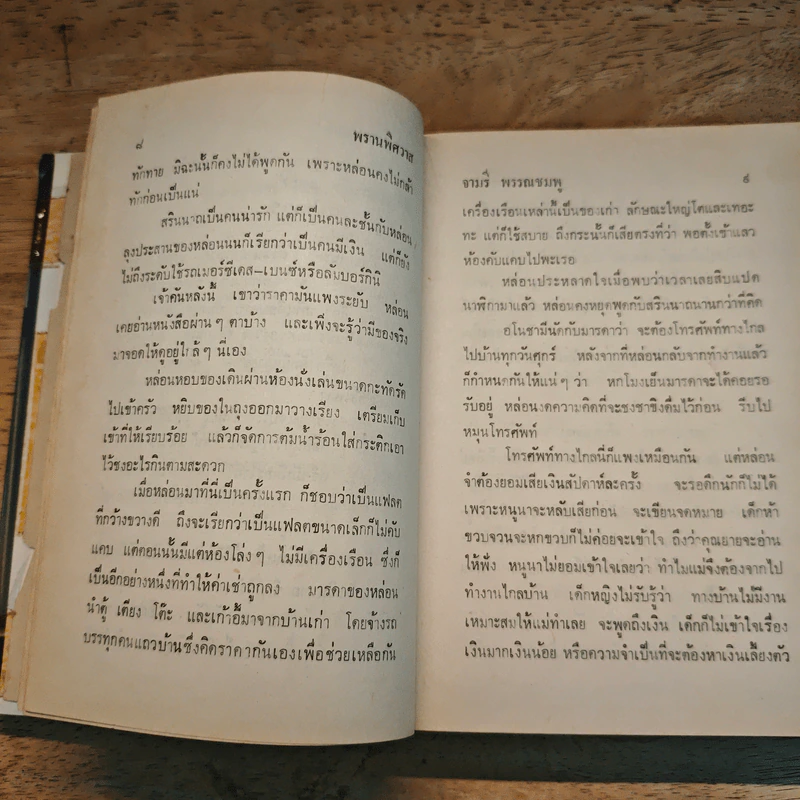 ๘
พรานพิศวาส
ทักทาย มิฉะนั้นก็คงไม่ได้พูดกัน เพราะหล่อนคงไม่กล้า
ทักก่อนเป็นแน่
สรินนาถเป็นคนน่ารัก แต่ก็เป็นคนละชั้นกับหล่อน
ลุงประสานของหล่อนนั้นก็เรียกว่าเป็นคนมีเงิน แต่ก็ยัง
ไม่ถึงระดับใช้รถเมอร์ซีเดส–เบนซ์หรือลัมบอร์กินี
เจ้าคันหลังนี้ เขาว่าราคามันแพงระยับ หล่อน
เคยอ่านหนังสือผ่าน ๆ ตาบ้าง และเพิ่งจะรู้ว่ามีของจริง
มาจอดให้ดูอยู่ใกล้ ๆ นี่เอง
หล่อนหอบของเดินผ่านห้องนั่งเล่นขนาดกะทัดรัด
ไปเข้าครัว หยิบของในถุงออกมาวางเรียง เตรียมเก็บ
เข้าที่ให้เรียบร้อย แล้วก็จัดการต้มน้ำร้อนใส่กระติกเอา
ไว้ชงอะไรกินตามสะดวก
เมื่อหล่อนมาที่นี่เป็นครั้งแรก ก็ชอบว่าเป็นแฟลต
ที่กว้างขวางดี ถึงจะเรียกว่าเป็นแฟลตขนาดเล็กก็ไม่คับ
แคบ แต่ตอนนั้นมีแต่ห้องโล่ง ๆ ไม่มีเครื่องเรือน ซึ่งก็
เป็นอีกอย่างหนึ่งที่ทำให้ค่าเช่าถูกลง มารดาของหล่อน
นำตู้ เตียง โต๊ะ และเก้าอี้มาจากบ้านเก่า โดยจ้างรถ
บรรทุกคนแถวบ้านซึ่งคิดราคากันเองเพื่อช่วยเหลือกัน
จามรี พรรณชมพู
๙
เครื่องเรือนเหล่านี้เป็นของเก่า ลักษณะใหญ่โตและเทอะ
ทะ แต่ก็ใช้สบาย ถึงกระนั้นก็เสียตรงที่ว่า พอตั้งเข้าแล้ว
ห้องคับแคบไปพะเรอ
หล่อนประหลาดใจเมื่อพบว่าเวลาเลยสิบแปด
นาฬิกามาแล้ว หล่อนคงหยุดพูดกับสรินนาถนานกว่าที่คิด
อโนชามีนัดกับมารดาว่า จะต้องโทรศัพท์ทางไกล
ไปบ้านทุกวันศุกร์ หลังจากที่หล่อนกลับจากทำงานแล้ว
ก็กำหนดกันให้แน่ ๆ ว่า หกโมงเย็นมารดาจะได้คอยรอ
รับอยู่ หล่อนงดความคิดที่จะชงชาขิงดื่มไว้ก่อน รีบไป
หมุนโทรศัพท์
โทรศัพท์ทางไกลนี่ก็แพงเหมือนกัน แต่หล่อน
จำต้องยอมเสียเงินสัปดาห์ละครั้ง จะรอดึกนักก็ไม่ได้
เพราะหนูนาจะหลับเสียก่อน จะเขียนจดหมาย เด็กห้า
ขวบจวนจะหกขวบก็ไม่ค่อยจะเข้าใจ ถึงว่าคุณยายจะอ่าน
ให้ฟัง หนูนาไม่ยอมเข้าใจเลยว่า ทำไมแม่จึงต้องจากไป
ทำงานไกลบ้าน เด็กหญิงไม่รับรู้ว่า ทางบ้านไม่มีงาน
เหมาะสมให้แม่ทำเลย จะพูดถึงเงิน เด็กก็ไม่เข้าใจเรื่อง
เงินมากเงินน้อย หรือความจำเป็นที่จะต้องหาเงินเลี้ยงตัว